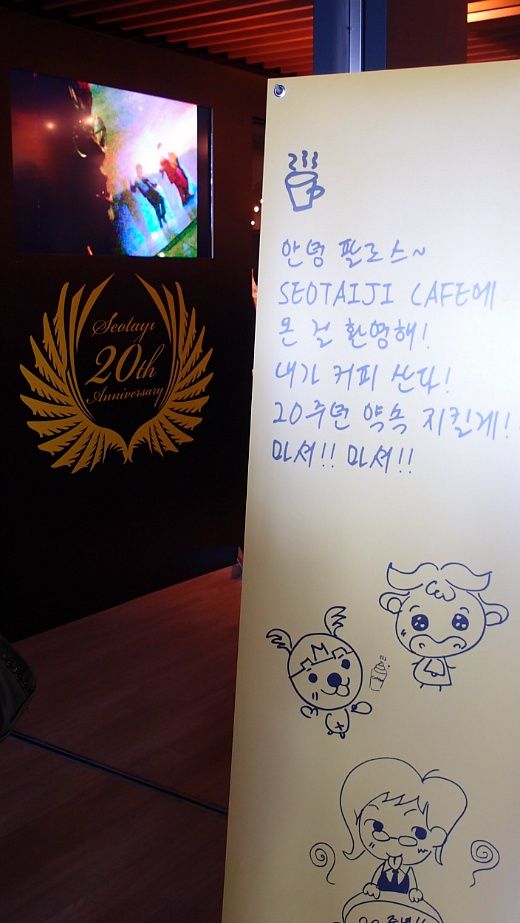 Seotaiji
20th
Anniversary
안녕 팔로스~
SEOTAIJI CAFE에
온 걸 환영해!
내가 커피 산다!
20주년 약속 지킬게!
마셔!! 마셔!!